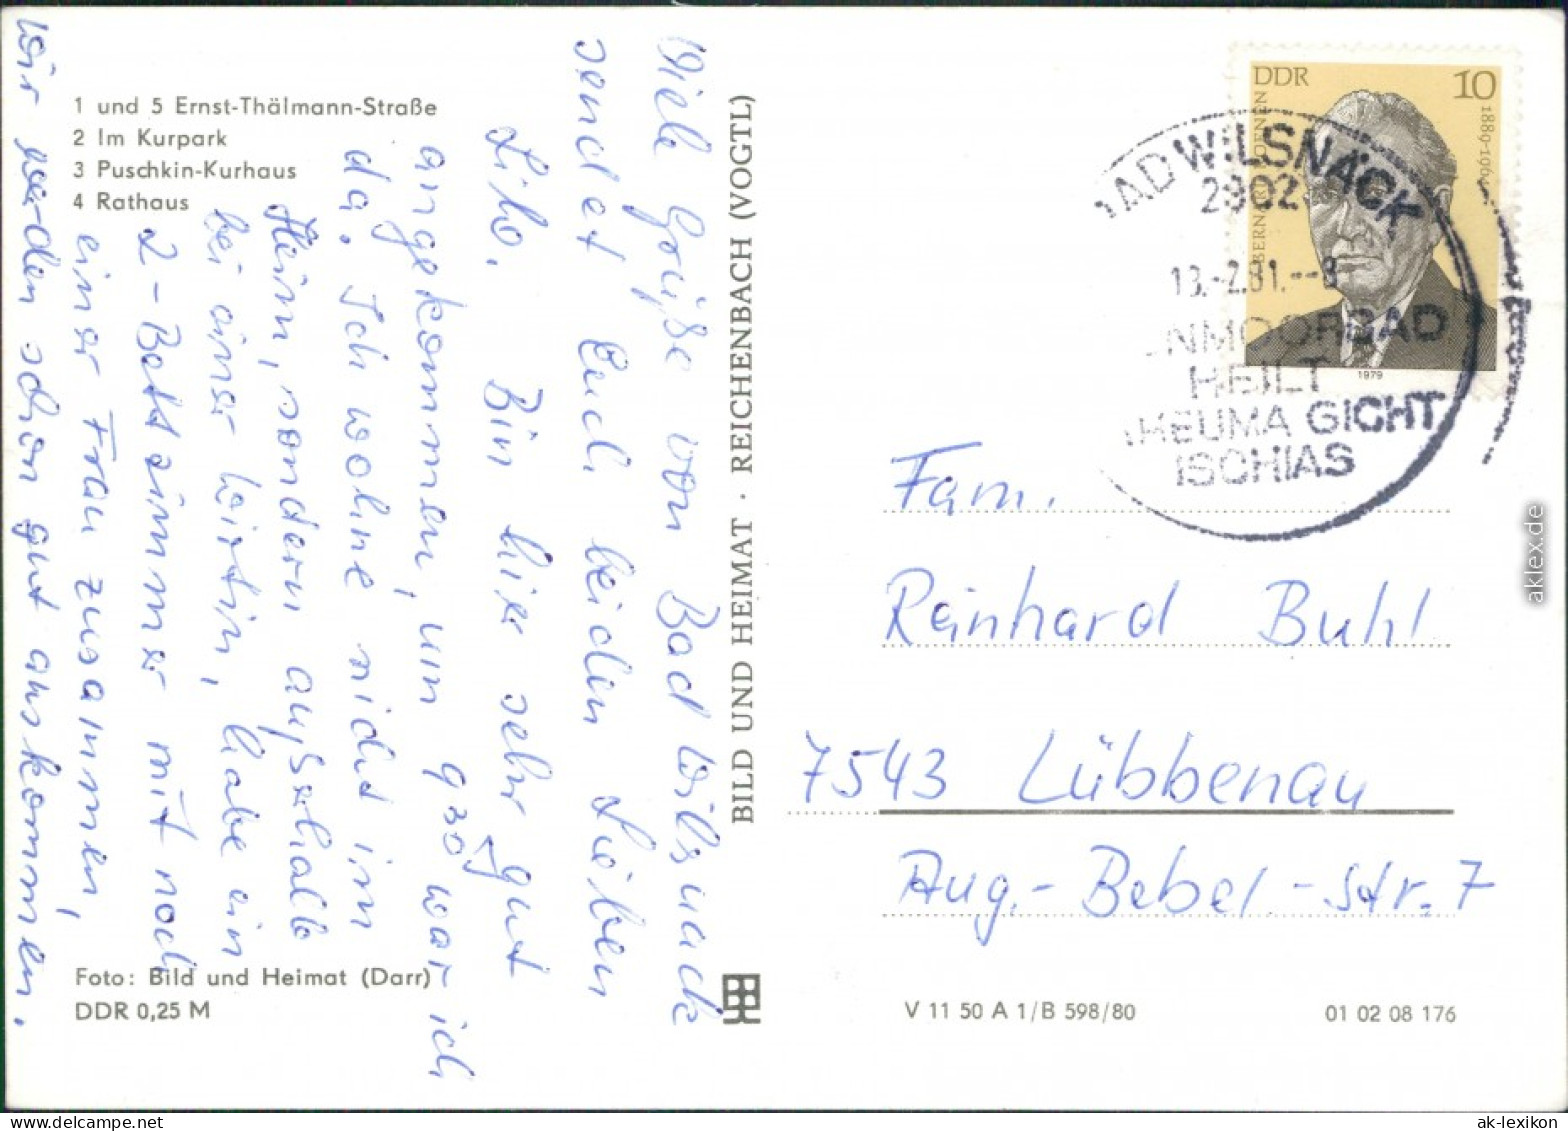 1 und 5 Ernst-Thälmann-Straße
2 Im Kurpark
3 Puschkin-Kurhaus
4 Rathaus
Viele Grüße von Bad Wilsnack
sendet Euch beiden Lieben
Lilo. Bin hier sehr gut
angekommen, um 9³⁰ war ich
da. Ich wohne nicht im
Heim, sondern außerhalb
bei einer Wirtin, habe ein
2-Bettzimmer mit noch
einer Frau zusammen,
wir werden schon gut auskommen.
Foto: Bild und Heimat (Darr)
DDR 0,25 M
BILD UND HEIMAT · REICHENBACH (VOGTL)
DDR 10
1979
BAD WILSNACK
2902
13.-2.81.--8
NMOORBAD
HEILT
RHEUMA GICHT
ISCHIAS
Fam.
Reinhard Buhl
7543 Lübbenau
Aug.-Bebel-Str. 7
V 11 50 A 1/B 598/80
01 02 08 176
aklex.de
ak-lexikon